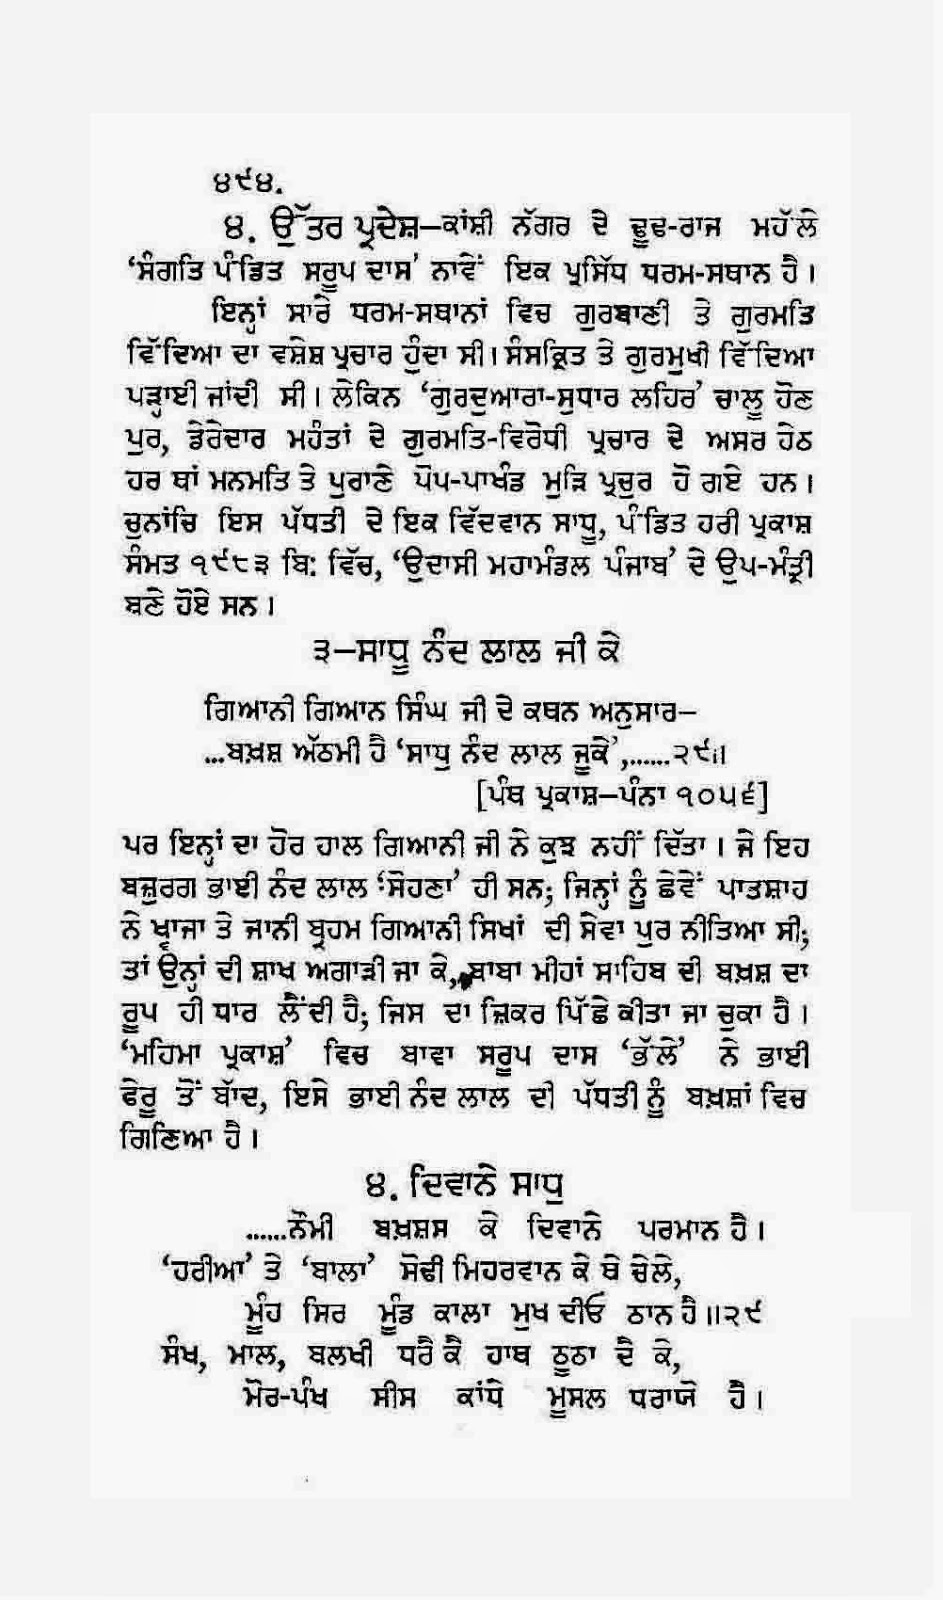 ੪੯੪.
੪. ਉੱਤਰ ਪ੍ਰਦੇਸ਼—ਕਾਂਸ਼ੀ ਨੱਗਰ ਦੇ ਢੂਢ-ਰਾਜ ਮਹੱਲੇ
‘ਸੰਗਤਿ ਪੰਡਿਤ ਸਰੂਪ ਦਾਸ’ ਨਾਵੇਂ ਇਕ ਪ੍ਰਸਿੱਧ ਧਰਮ-ਸਥਾਨ ਹੈ।
ਇਨ੍ਹਾਂ ਸਾਰੇ ਧਰਮ-ਸਥਾਨਾਂ ਵਿਚ ਗੁਰਬਾਣੀ ਤੇ ਗੁਰਮਤਿ
ਵਿੱਦਿਆ ਦਾ ਵਸ਼ੇਸ਼ ਪ੍ਰਚਾਰ ਹੁੰਦਾ ਸੀ। ਸੰਸਕ੍ਰਿਤ ਤੇ ਗੁਰਮੁਖੀ ਵਿੱਦਿਆ
ਪੜ੍ਹਾਈ ਜਾਂਦੀ ਸੀ। ਲੇਕਿਨ ‘ਗੁਰਦੁਆਰਾ-ਸੁਧਾਰ ਲਹਿਰ’ ਚਾਲੂ ਹੋਣ
ਪੁਰ, ਡੇਰੇਦਾਰ ਮਹੰਤਾਂ ਦੇ ਗੁਰਮਤਿ-ਵਿਰੋਧੀ ਪ੍ਰਚਾਰ ਦੇ ਅਸਰ ਹੇਠ
ਹਰ ਥਾਂ ਮਨਮਤਿ ਤੇ ਪੁਰਾਣੇ ਪੋਪ-ਪਾਖੰਡ ਮੁੜਿ ਪ੍ਰਚੁਰ ਹੋ ਗਏ ਹਨ।
ਚੁਨਾਂਚਿ ਇਸ ਪੱਧਤੀ ਦੇ ਇਕ ਵਿੱਦਵਾਨ ਸਾਧੂ, ਪੰਡਿਤ ਹਰੀ ਪ੍ਰਕਾਸ਼
ਸੰਮਤ ੧੯੮੩ ਬਿ: ਵਿੱਚ, ‘ਉਦਾਸੀ ਮਹਾਮੰਡਲ ਪੰਜਾਬ’ ਦੇ ਉਪ-ਮੰਤ੍ਰੀ
ਬਣੇ ਹੋਏ ਸਨ।
੩—ਸਾਧੂ ਨੰਦ ਲਾਲ ਜੀ ਕੇ
ਗਿਆਨੀ ਗਿਆਨ ਸਿੰਘ ਜੀ ਦੇ ਕਥਨ ਅਨੁਸਾਰ—
...ਬਖ਼ਸ਼ ਅੱਠਮੀ ਹੈ ‘ਸਾਧੁ ਨੰਦ ਲਾਲ ਜੂਕੇ’,......੨੯॥
[ਪੰਥ ਪ੍ਰਕਾਸ਼—ਪੰਨਾ ੧੦੫੬]
ਪਰ ਇਨ੍ਹਾਂ ਦਾ ਹੋਰ ਹਾਲ ਗਿਆਨੀ ਜੀ ਨੇ ਕੁਝ ਨਹੀਂ ਦਿੱਤਾ। ਜੇ ਇਹ
ਬਜ਼ੁਰਗ ਭਾਈ ਨੰਦ ਲਾਲ ‘ਸੋਹਣਾ’ ਹੀ ਸਨ; ਜਿਨ੍ਹਾਂ ਨੂੰ ਛੇਵੇਂ ਪਾਤਸ਼ਾਹ
ਨੇ ਖ੍ਵਾਜਾ ਤੇ ਜਾਨੀ ਬ੍ਰਹਮ ਗਿਆਨੀ ਸਿਖਾਂ ਦੀ ਸੇਵਾ ਪੁਰ ਨੀਤਿਆ ਸੀ;
ਤਾਂ ਉਨ੍ਹਾਂ ਦੀ ਸ਼ਾਖ ਅਗਾੜੀ ਜਾ ਕੇ, ਬਾਬਾ ਮੀਹਾਂ ਸਾਹਿਬ ਦੀ ਬਖ਼ਸ਼ ਦਾ
ਰੂਪ ਹੀ ਧਾਰ ਲੈਂਦੀ ਹੈ; ਜਿਸ ਦਾ ਜ਼ਿਕਰ ਪਿੱਛੇ ਕੀਤਾ ਜਾ ਚੁਕਾ ਹੈ।
‘ਮਹਿਮਾ ਪ੍ਰਕਾਸ਼’ ਵਿਚ ਬਾਵਾ ਸਰੂਪ ਦਾਸ ‘ਭੱਲੇ’ ਨੇ ਭਾਈ
ਫੇਰੂ ਤੋਂ ਬਾੱਦ, ਇਸੇ ਭਾਈ ਨੰਦ ਲਾਲ ਦੀ ਪੱਧਤੀ ਨੂੰ ਬਖ਼ਸ਼ਾਂ ਵਿਚ
ਗਿਣਿਆ ਹੈ।
੪. ਦਿਵਾਨੇ ਸਾਧੁ
......ਨੌਮੀ ਬਖ਼ਸ਼ਸ ਕੇ ਦਿਵਾਨੇ ਪਰਮਾਨ ਹੈ।
‘ਹਰੀਆ’ ਤੇ ‘ਬਾਲਾ’ ਸੋਢੀ ਮਿਹਰਵਾਨ ਕੇ ਥੇ ਚੇਲੇ,
ਮੂੰਹ ਸਿਰ ਮੂੰਡ ਕਾਲਾ ਮੁਖ ਦੀਓ ਠਾਨ ਹੈ॥੨੯
ਸੰਖ, ਮਾਲ, ਬਲਖੀ ਧਰੈ ਕੈ ਹਾਥ ਠੂਠਾ ਦੈ ਕੇ,
ਮੋਰ-ਪੰਖ ਸੀਸ ਕਾਂਧੇ ਮੂਸਲ ਧਰਾਯੋ ਹੈ।